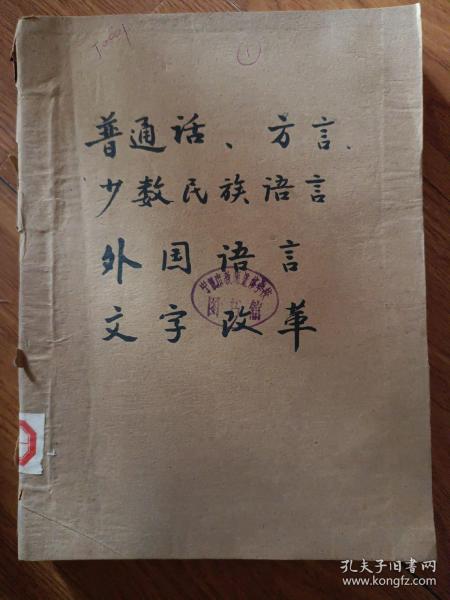 ①
普通话、方言、
少数民族语言
外国语言
文字改革
图书馆
孔夫子旧书网
www.kongfz.com